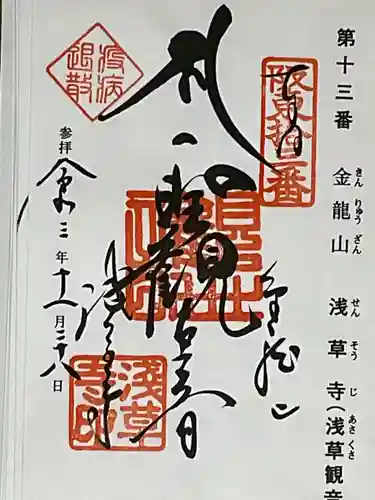 第十三番 金龍山 浅草寺(浅草観音
きん りゅう ざん せん そう じ あさ くさ
奉拝
阪東拾三番
金龍山
聖観世音
浅草寺
疫病退散
参拝 令和三年十一月二十八日
浅草寺印